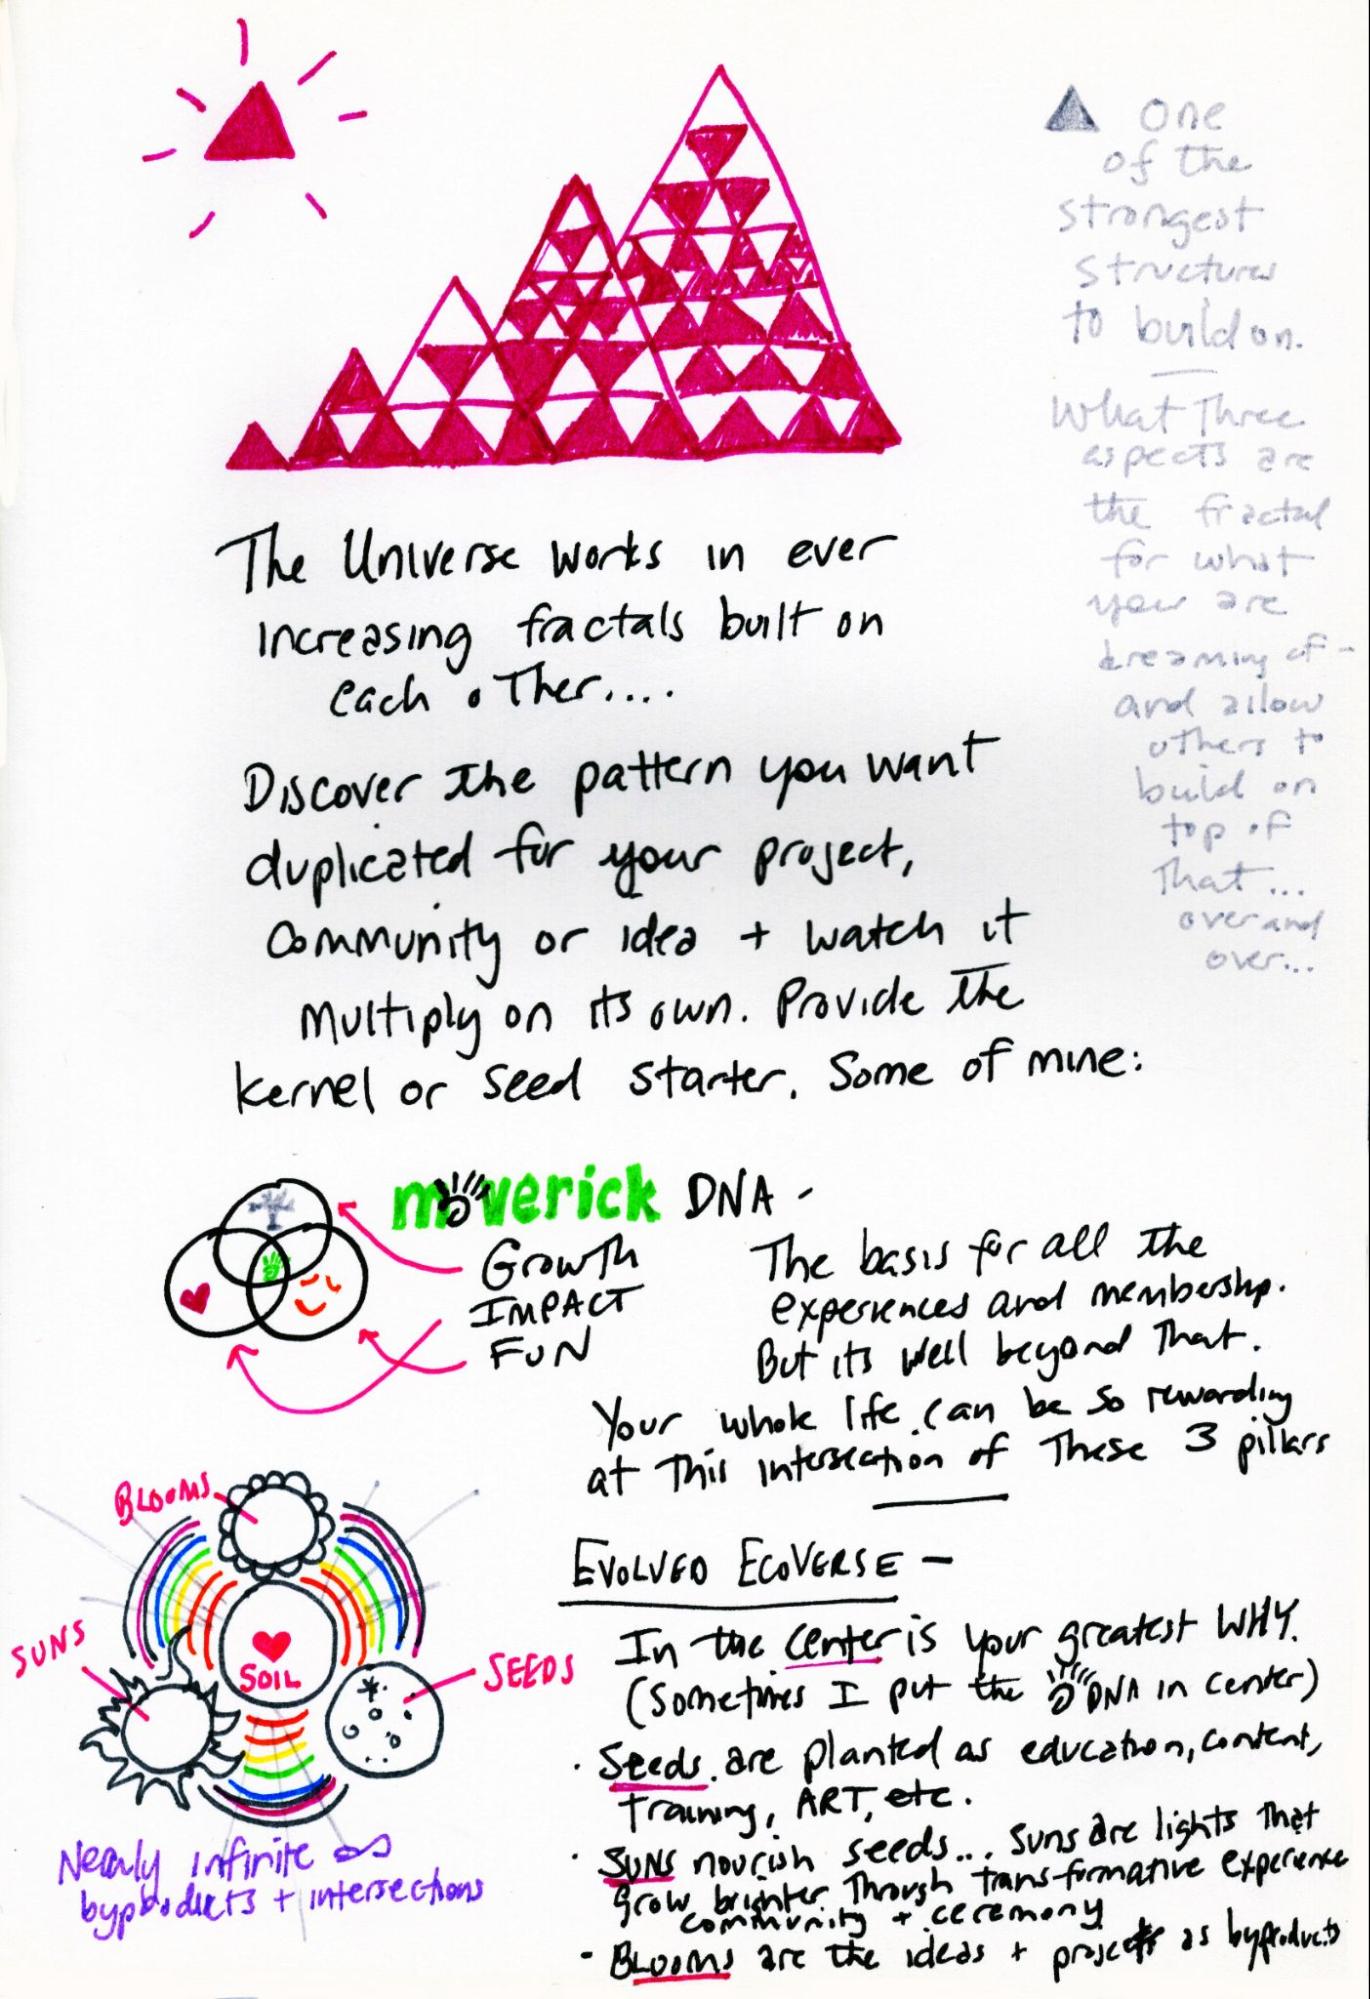 ▲ One
of the
strongest
structures
to build on.
What Three
aspects are
the fractal
for what
you are
dreaming of -
and allow
others to
build on
top of
That...
over and
over...
The Universe works in ever
increasing fractals built on
each other....
Discover the pattern you want
duplicated for your project,
community or idea + watch it
multiply on its own. Provide the
kernel or seed starter. Some of mine:
maverick DNA -
Growth
IMPACT
FUN
The basis for all the
experiences and membership.
But its well beyond That.
Your whole life can be so rewarding
at This intersection of These 3 pillars
BLOOMS
SUNS
SOIL
SEEDS
Nearly infinite ∞
byproducts + intersections
EVOLVED ECOVERSE -
In the center is your greatest WHY.
(Sometimes I put the DNA in center)
· Seeds are planted as education, content,
Training, ART, etc.
· SUNS nourish seeds... Suns are lights That
grow brighter Through transformative experience
community + ceremony
- BLOOMS are the ideas + projects as byproducts